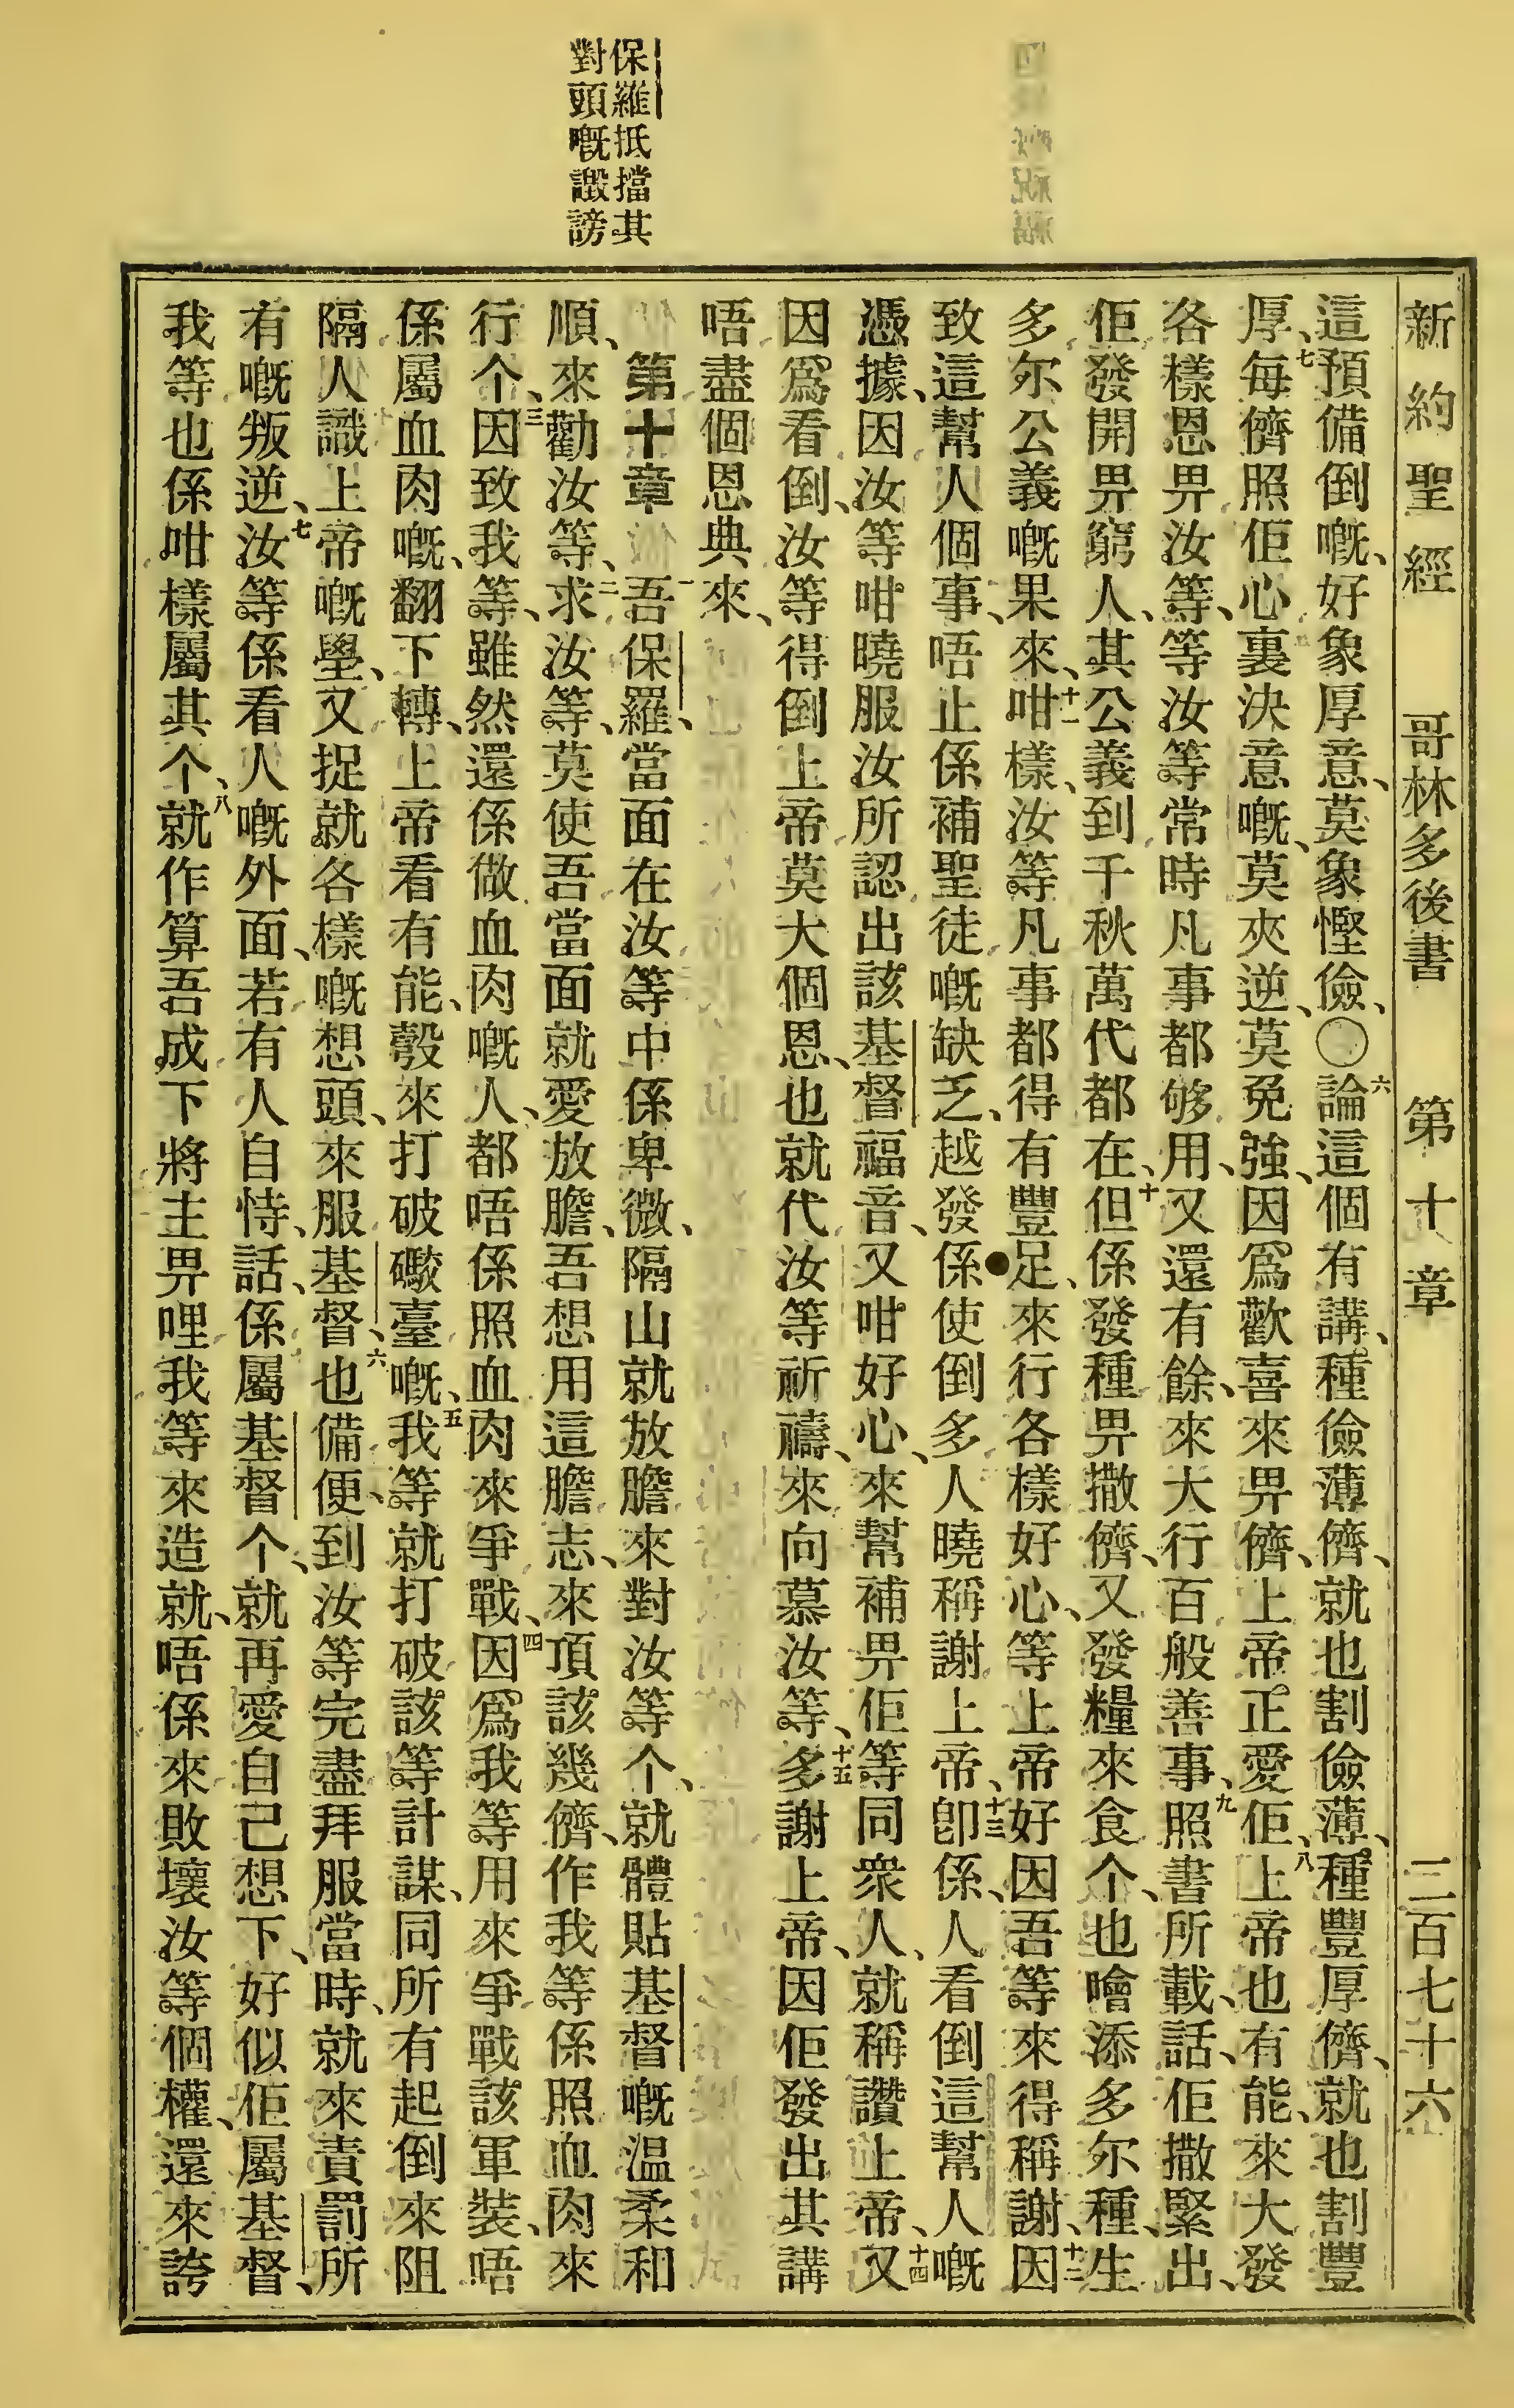 保羅抵擋其
對頭嘅譭謗
新約聖經 哥林多後書 第十章 二百七十六
這預備倒嘅、好象厚意、莫象慳儉、〇六論這個有講、種儉薄儕、就也割儉薄、種豐厚儕、就也割豐
厚、七每儕照佢心裏決意嘅、莫夾逆、莫免強、因爲歡喜來畀儕、上帝正愛佢、八上帝也有能、來大發
各樣恩畀汝等、等汝等常時凡事都够用、又還有餘、來大行百般善事、九照書所載、話、佢撒緊出、
佢發開畀窮人、其公義到千秋萬代都在、十但係發種畀撒儕、又發糧來食个、也噲添多尔種、生
多尔公義嘅果來、十一咁樣、汝等凡事都得有豐足、來行各樣好心、等上帝好因吾等來得稱謝、十二因
致這幫人個事、唔止係補聖徒嘅缺乏、越發係使倒多人曉稱謝上帝、十三卽係、人看倒這幫人嘅
憑據、因汝等咁曉服汝所認出該基督福音、又咁好心、來幫補畀佢等同衆人、就稱讚上帝、十四又
因爲看倒、汝等得倒上帝莫大個恩、也就代汝等祈禱、來向慕汝等、十五多謝上帝、因佢發出其講
唔盡個恩典來、
第十章 一吾保羅、當面在汝等中係卑微、隔山就放膽來對汝等个、就體貼基督嘅温柔和
順、來勸汝等、二求汝等、莫使吾當面就愛放膽、吾想用這膽志、來頂該幾儕、作我等係照血肉來
行个、三因致我等、雖然還係做血肉嘅人、都唔係照血肉來爭戰、四因爲我等用來爭戰該軍裝、唔
係屬血肉嘅、翻下轉、上帝看有能、彀來打破礮臺嘅、五我等就打破該等計謀、同所有起倒來阻
隔人識上帝嘅學、又捉就各樣嘅想頭、來服基督、六也備便、到汝等完盡拜服當時、就來責罰所
有嘅叛逆、七汝等係看人嘅外面、若有人自恃、話、係屬基督个、就再愛自己想下、好似佢屬基督、
我等也係咁樣屬其个、八就作算吾成下將主畀哩我等來造就、唔係來敗壞汝等個權、還來誇